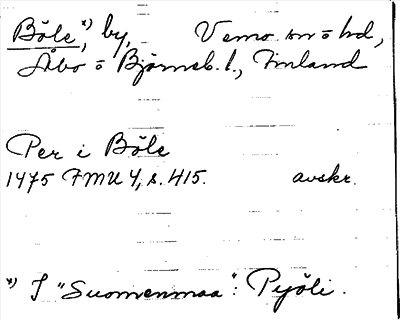 Böle *), by, Vemo sn o hd,
Åbo o Björneb. l., Finland
Per i Böle
1475 FMU 4, s. 415. avskr.
*) I "Suomenmaa": Pyöli.